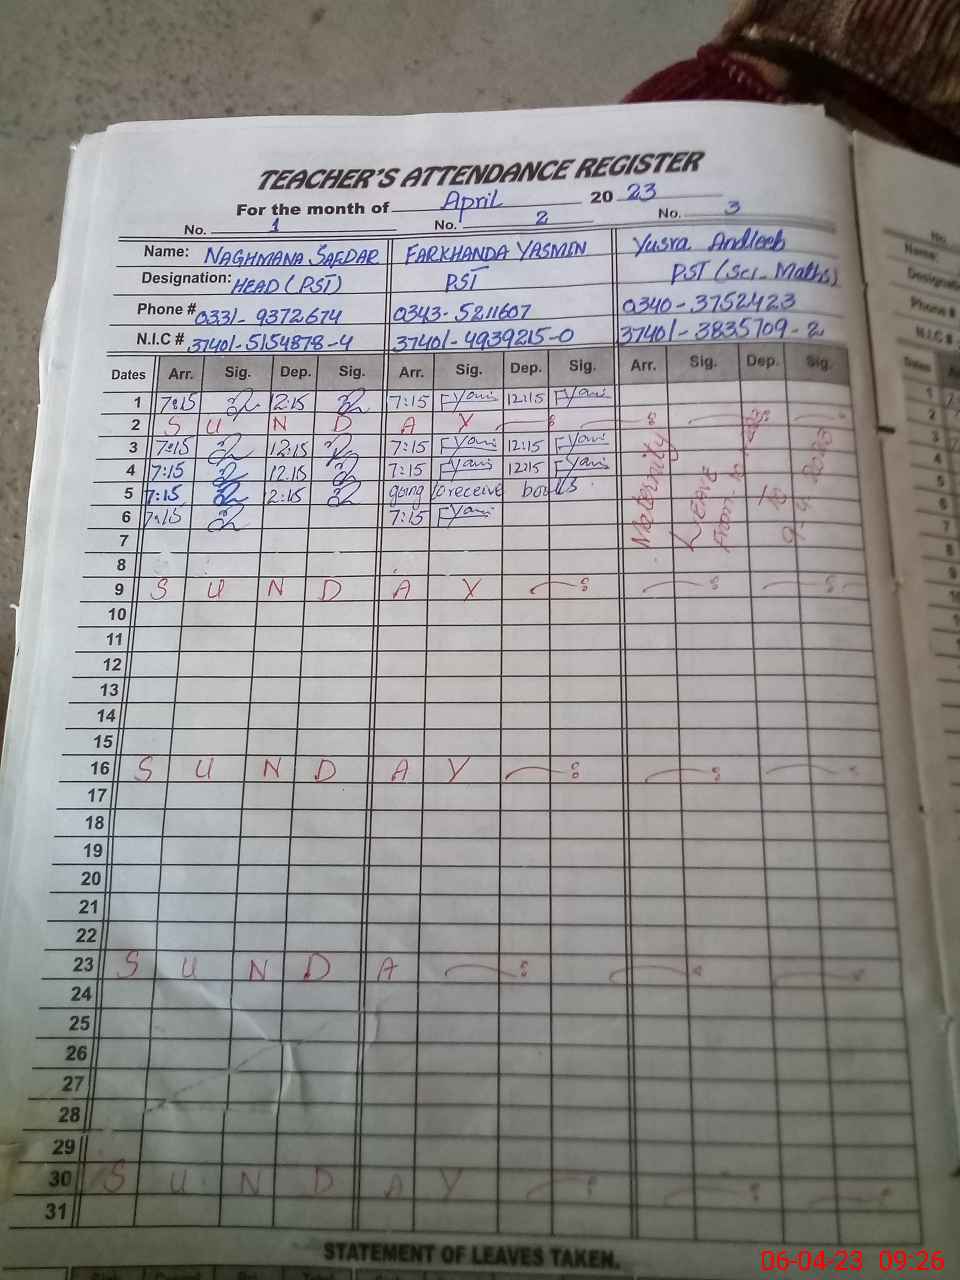 TEACHER'S ATTENDANCE REGISTER
For the month of April 2023
No. 1 No. 2 No. 3
Name: NAGHMANA SAFDAR FARKHANDA YASMIN Yusra Andleeb
Designation: HEAD (PST) PST PST (Sci-Maths)
Phone # 0331-9372674 0343-5211607 0340-3752423
N.I.C # 37401-5154878-4 37401-4939215-0 37401-3835709-2
Dates Arr. Sig. Dep. Sig. Arr. Sig. Dep. Sig. Arr. Sig. Dep. Sig.
1 7:15 12:15 7:15 FYasmin 12:15 FYasmin
2 S U N D A Y
3 7:15 12:15 7:15 FYasmin 12:15 FYasmin
4 7:15 12:15 7:15 FYasmin 12:15 FYasmin
5 7:15 12:15 going to receive books.
6 7:15 7:15 FYasmin
Maternity
Leave
From
to
7
8
9 S U N D A Y
10
11
12
13
14
15
16 S U N D A Y
17
18
19
20
21
22
23 S U N D A
24
25
26
27
28
29
30 S U N D A Y
31
STATEMENT OF LEAVES TAKEN.
06-04-23 09:26